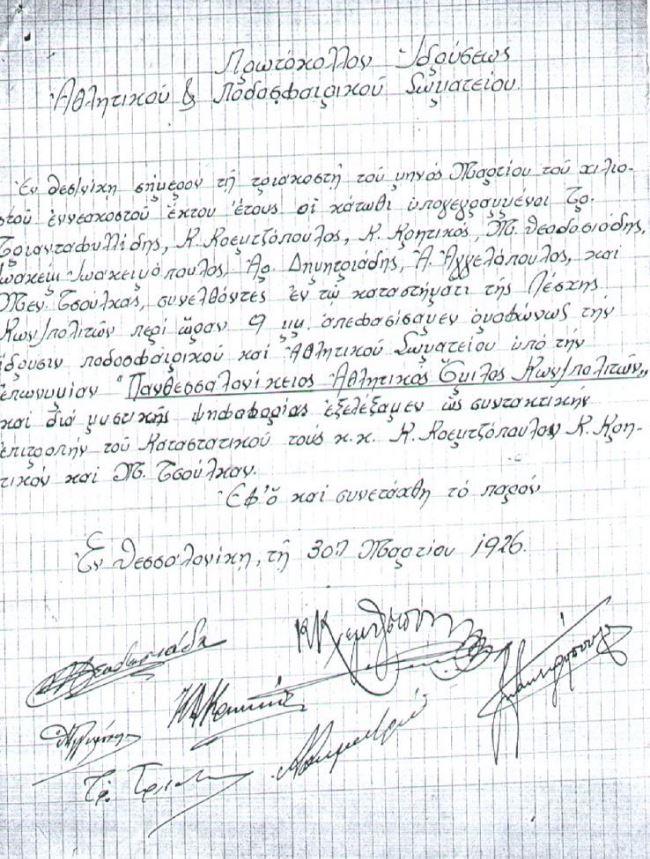 Πρωτόκολλον Ἱδρύσεως
Ἀθλητικοῦ & Ποδοσφαιρικοῦ Σωματείου.
Ἐν Θεσ/νίκη σήμερον τῇ τριακοστῇ τοῦ μηνὸς Μαρτίου τοῦ χιλιο-
στοῦ ἐννεακοστοῦ ἕκτου ἔτους οἱ κάτωθι ὑπογεγραμμένοι Τρ.
Τριανταφυλλίδης, Κ. Κοεμτζόπουλος, Κ. Κρητικός, Μ. Θεοδοσιάδης,
Ἰωακεὶμ Ἰωακειμόπουλος, Ἀρ. Δημητριάδης, Ἀ. Ἀγγελόπουλος, καὶ
Μεν. Τσούλκας, συνελθόντες ἐν τῷ καταστήματι τῆς Λέσχης
Κων/πολιτῶν περὶ ὥραν 9 μμ. ἀπεφασίσαμεν ὁμοφώνως τὴν
ἵδρυσιν ποδοσφαιρικοῦ καὶ Ἀθλητικοῦ Σωματείου ὑπὸ τὴν
ἐπωνυμίαν "Πανθεσσαλονίκειος Ἀθλητικὸς Ὅμιλος Κων/πολιτῶν„
καὶ διὰ μυστικῆς ψηφοφορίας ἐξελέξαμεν ὡς συντακτικὴν
ἐπιτροπὴν τοῦ Καταστατικοῦ τοὺς κ.κ. Κ. Κοεμτζόπουλον Κ. Κρη-
τικὸν καὶ Μ. Τσούλκαν.
Ἐφ' ὃ καὶ συνετάχθη τὸ παρὸν
Ἐν Θεσσαλονίκῃ, τῇ 30ῃ Μαρτίου 1926.